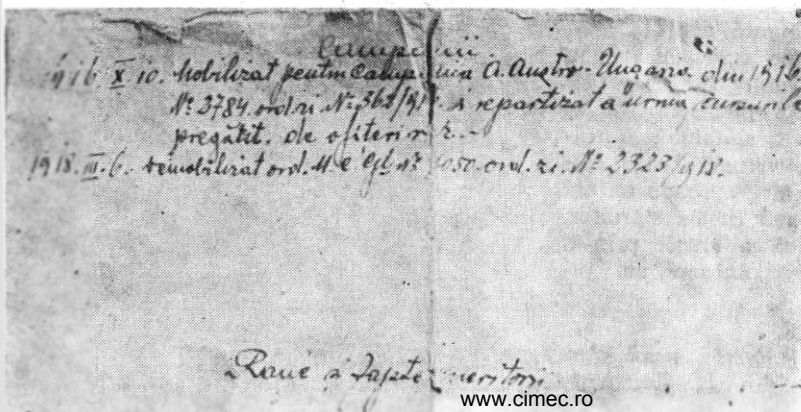 Campanii
1916 X 10. Mobilizat pentru Campania A. Austro-Ungaria din 1916
Nº 2784 ord. zi Nº și repartizat a urma cursurile
pregătit. de ofițeri rez.
1918. III. 6. Demobilizat ord. M. C. Gl. Nº 5050. ord. zi. Nº 2323/918.
Răni și Fapte meritorii
www.cimec.ro